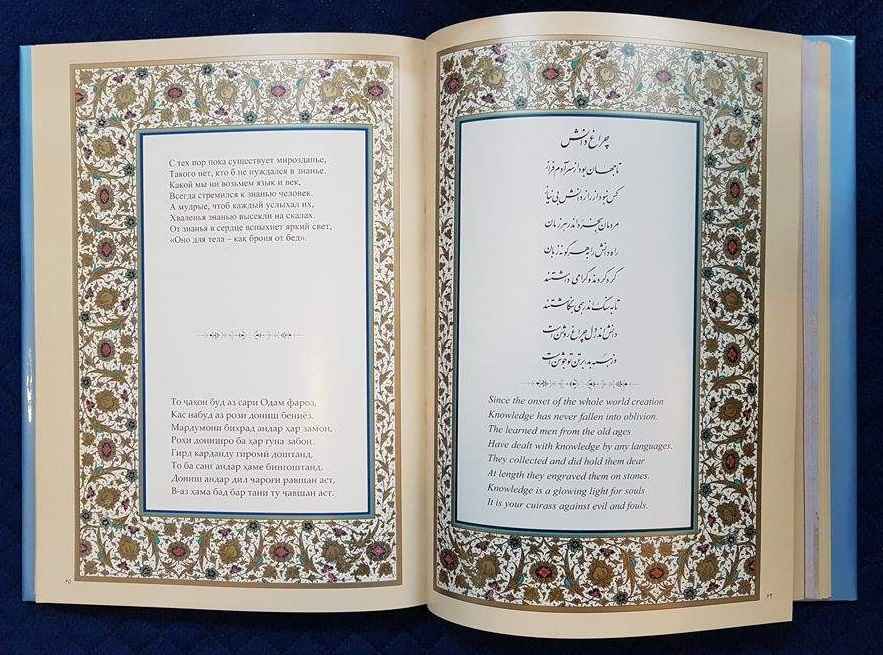 С тех пор пока существует мирозданье,
Такого нет, кто б не нуждался в знанье.
Какой мы ни возьмем язык и век,
Всегда стремился к знанью человек.
А мудрые, чтоб каждый услыхал их,
Хваленья знанью высекли на скалах.
От знанья в сердце вспыхнет яркий свет,
«Оно для тела – как броня от бед».
То ҷаҳон буд аз сари Одам фароз,
Кас набуд аз рози дониш бениёз.
Мардумони бихрад андар ҳар замон,
Роҳи донишро ба ҳар гуна забон.
Гирд карданду гиромӣ доштанд,
То ба санг андар ҳаме бингоштанд.
Дониш андар дил чароғи равшан аст,
В-аз ҳама бад бар тани ту ҷавшан аст.
۲۵
چراغ دانش
تا جهان بود از سر آدم فراز
کس نبود از راز دانش بی نیاز
مردمان بخرد اندر هر زمان
راه دانش را به هر گونه زبان
گرد کردند و گرامی داشتند
تا به سنگ اندر همی بنگاشتند
دانش اندر دل چراغ روشن است
وز همه بد بر تن تو جوشن است
Since the onset of the whole world creation
Knowledge has never fallen into oblivion.
The learned men from the old ages
Have dealt with knowledge by any languages.
They collected and did hold them dear
At length they engraved them on stones.
Knowledge is a glowing light for souls
It is your cuirass against evil and fouls.